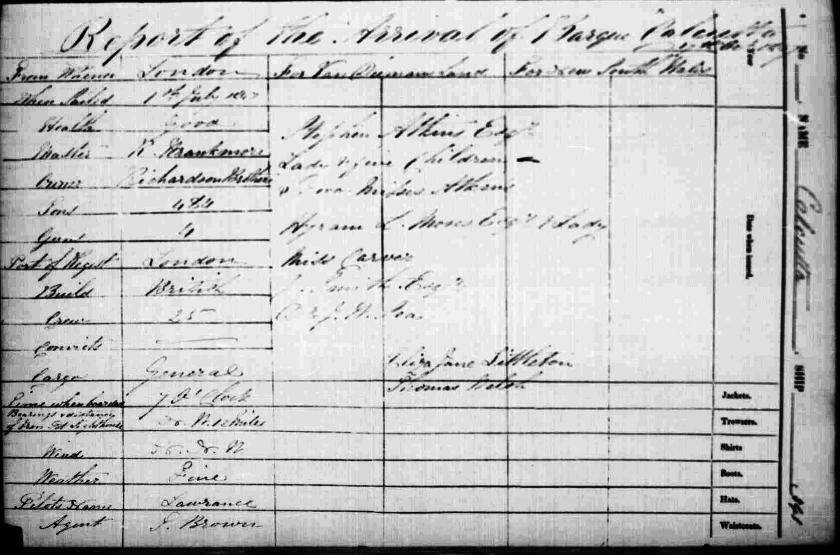 Report of the Arrival of Barque Calcutta
From Whence London For Van Diemans Land For New South Wales
When Sailed 1st July
Health Good
Master
Owner Richardson Brothers
Tons
Guns 4
Port of Regist London
Build British
Crew 25
Convicts
Cargo General
Time when boarded 7 O'Clock
Bearings & distance
of Iron Pot Lighthouse
Wind
Weather Fine
Pilots Name Lawrance
Agent J. Brown
Stephen Atkins Esqr
Lady & five Children
& two Misses Atkins
Hyram L. Moses Esqr & Lady
Miss Carver
J. Smith Esqr
Eliza Jane Littleton
Thomas Welsh
Date when issued.
Jackets.
Trowsers.
Shirts
Boots.
Hats.
Waistcoats.
No
NAME Calcutta
SHIP